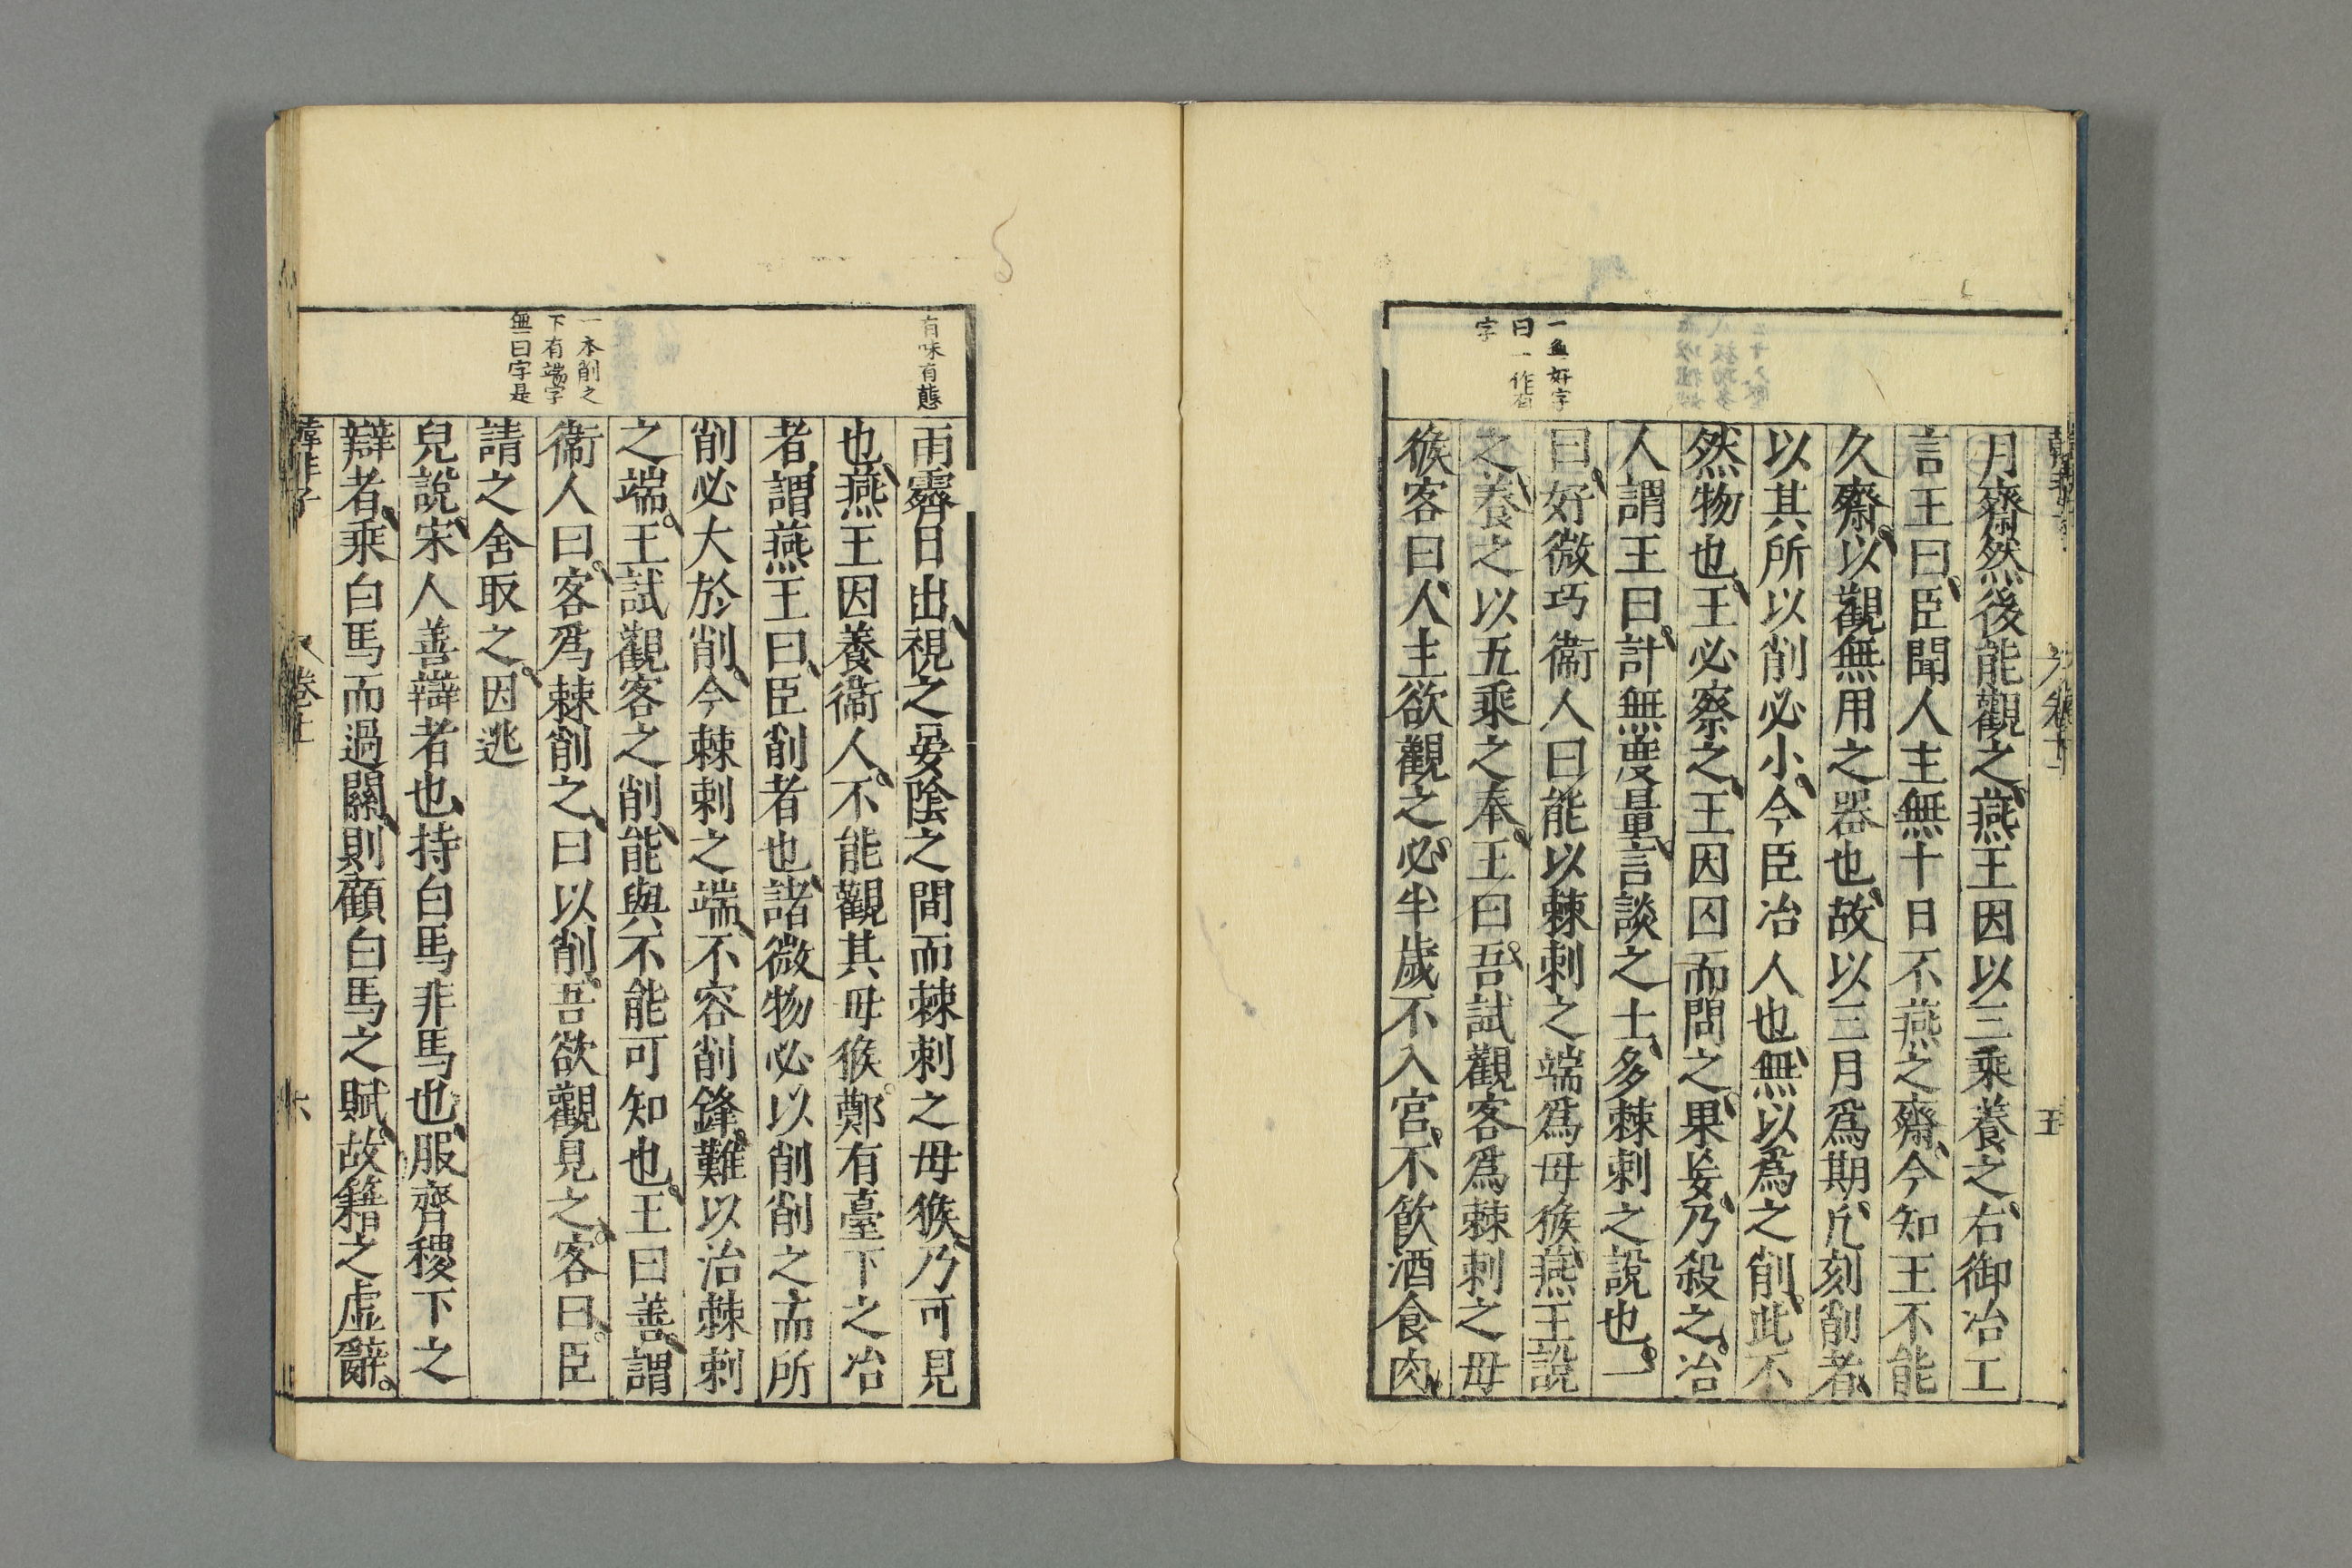 月齋然後能觀之燕王因以三乘養之右御冶工
言王曰臣聞人主無十日不燕之齋今知王不能
久齋以觀無用之器也故以三月爲期凡刻削者
以其所以削必小今臣冶人也無以爲之削此不
然物也王必察之王因囚而問之果妄乃殺之冶
人謂王曰計無度量言談之士多棘刺之說也一
曰好微巧衞人曰能以棘刺之端爲母猴燕王說
之養之以五乘之奉王曰吾試觀客爲棘刺之母
猴客曰人主欲觀之必半歲不入宮不飮酒食肉
一無好字
曰一作
字
五
雨霽日出視之晏陰之間而棘刺之母猴乃可見
也燕王因養衞人不能觀其母猴鄭有臺下之冶
者謂燕王曰臣削者也諸微物必以削削之而所
削必大於削今棘刺之端不容削鋒難以治棘刺
之端王試觀客之削能與不能可知也王曰善謂
衞人曰客爲棘削之曰以削吾欲觀見之客曰臣
請之舍取之因逃
兒說宋人善辯者也持白馬非馬也服齊稷下之
辯者乘白馬而過關則顧白馬之賦故籍之虛辭
有味有態
一本削之
下有端字
無曰字是
韓非子
卷十一
六